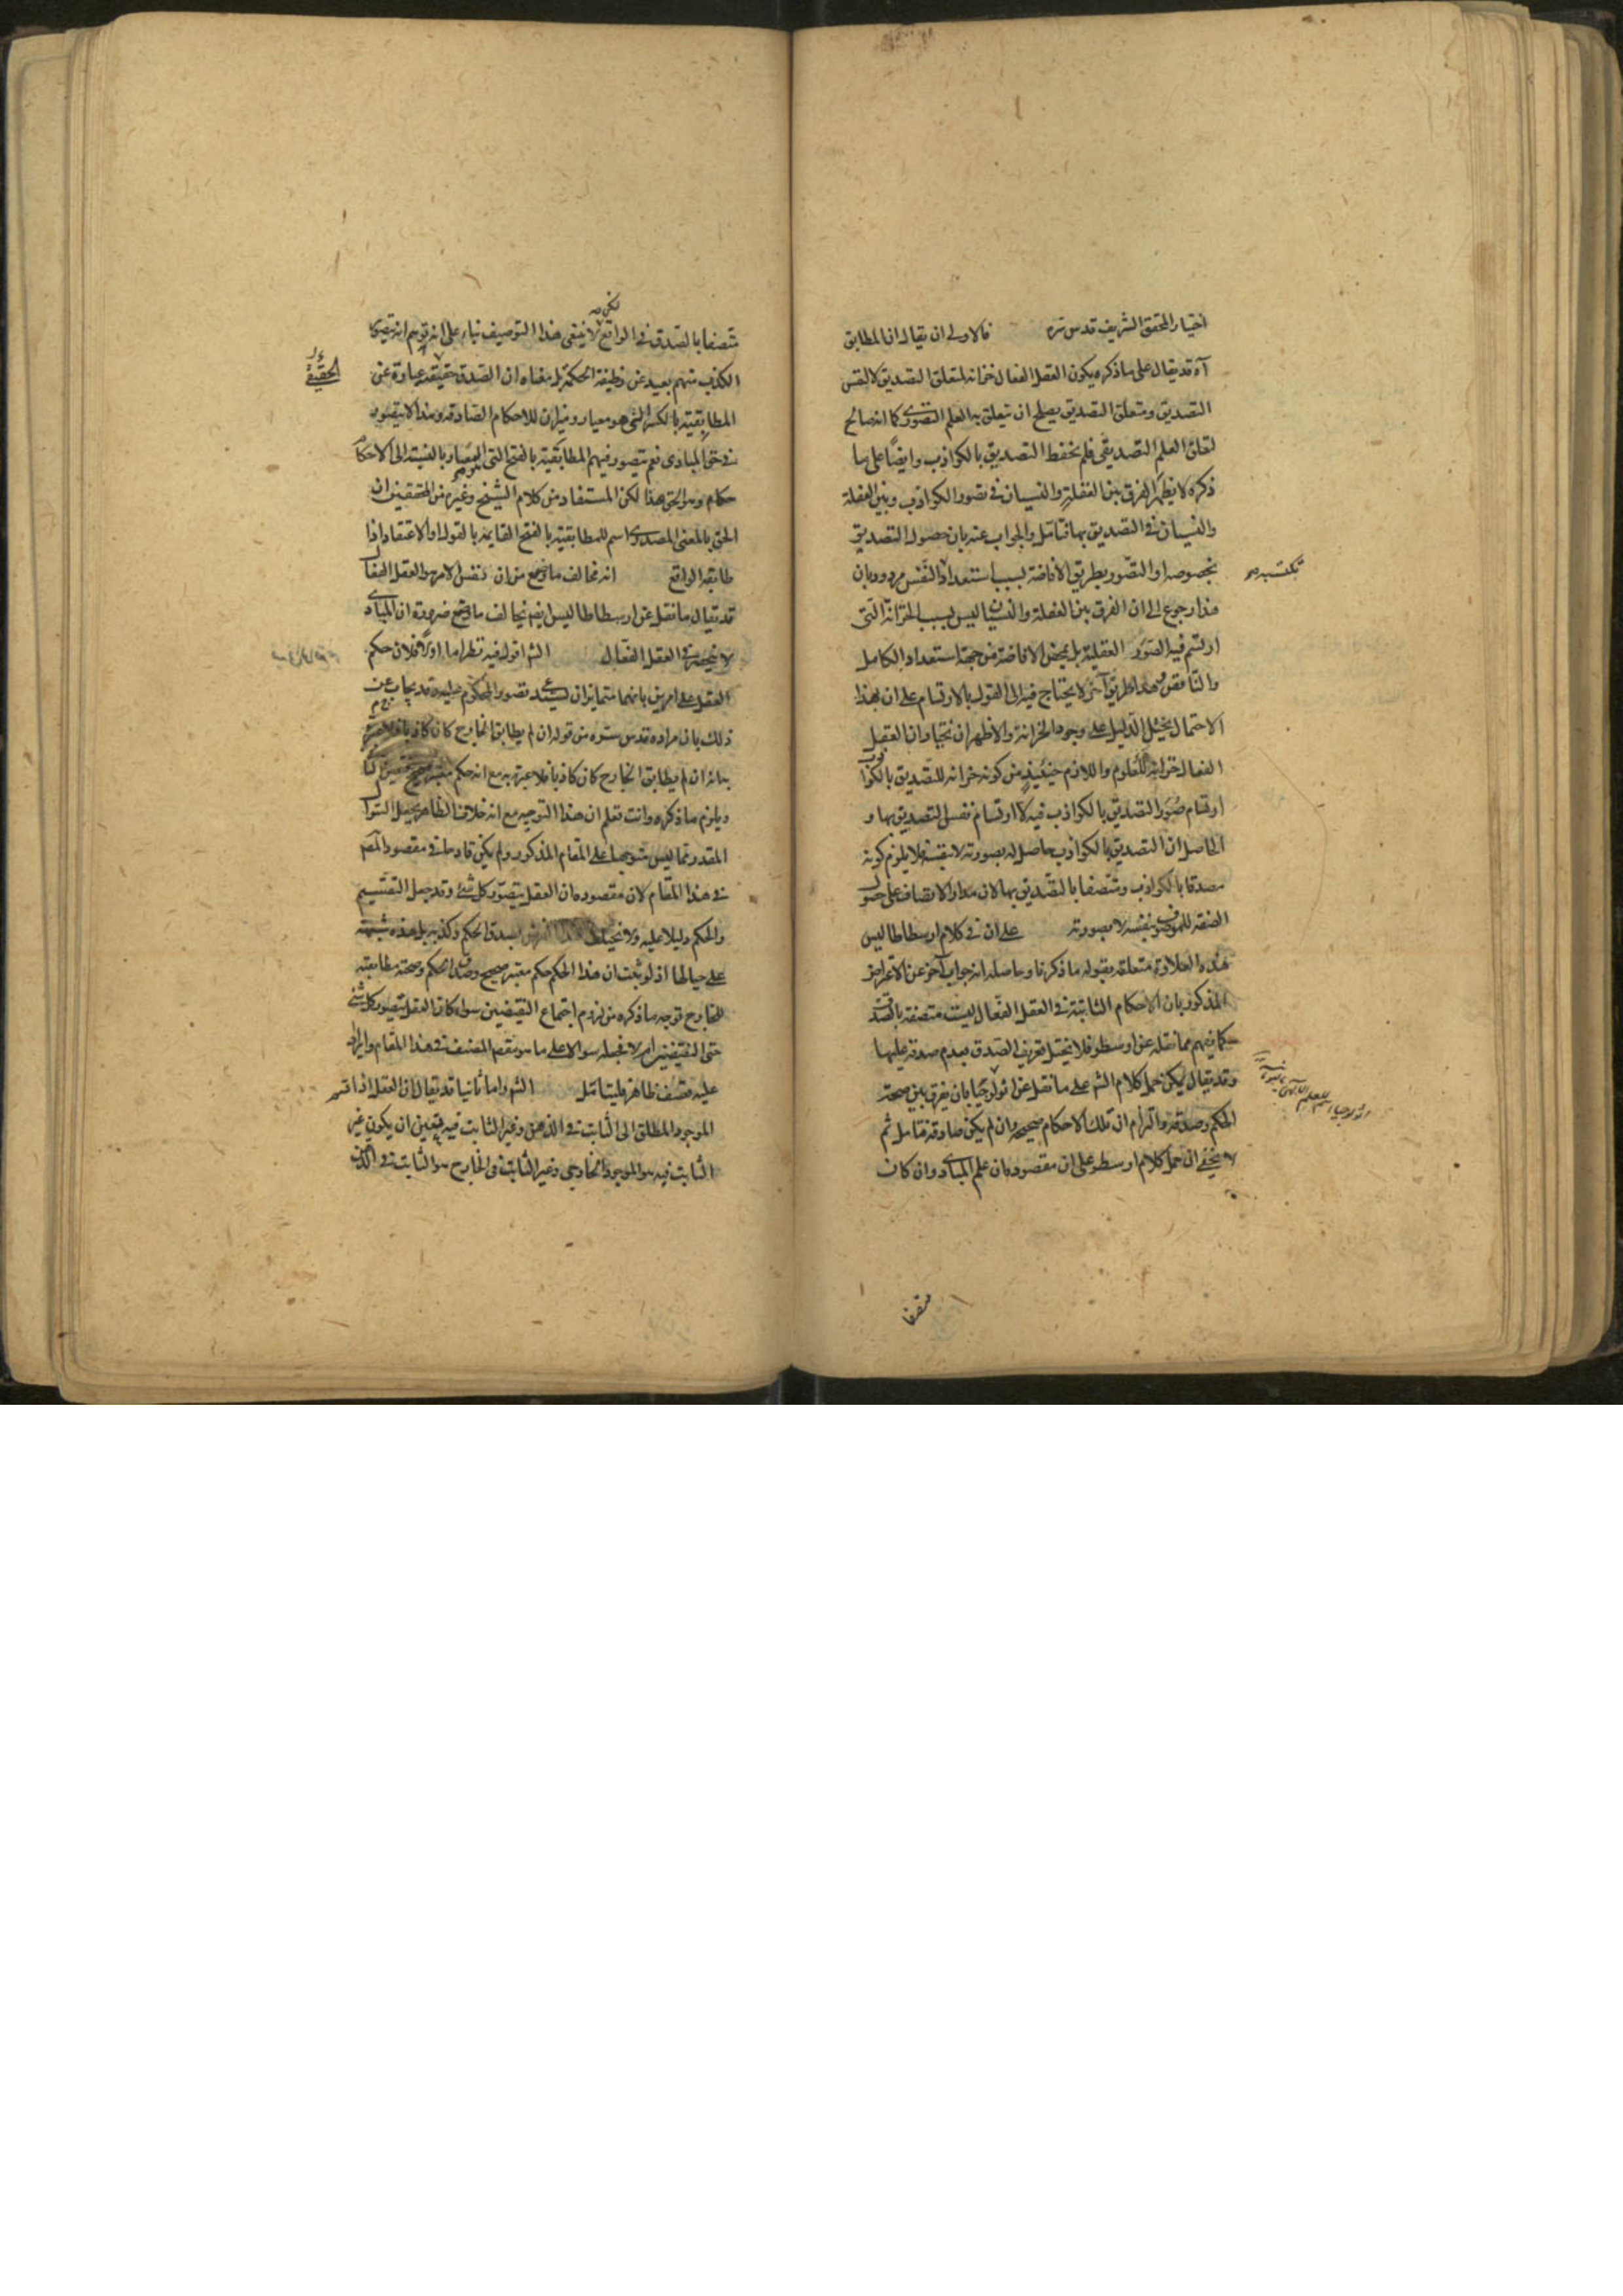 اختيار المحقق الشريف قدس سره فالاولى ان يقال ان المطابق
آه قد يقال على ما ذكره يكون العقل الفعال خزانه لمتعلق التصديق لا لنفس
التصديق ومتعلق التصديق يصلح ان يتعلق به العلم التصورى كما انه صالح
لتعلق العلم التصديقى فلم يحفظ التصديق بالكواذب وايضاً على ما
ذكره لا يظهر الفرق بين الغفلة والنسيان فى تصور الكواذب وبين الغفلة
والنسيان فى التصديق بها فتامل والجواب عنه بان حصول التصديق
بخصوصه او التصور بطريق الافاضة بسبب استعداد النفس مردود بان
هذا رجوع الى ان الفرق بين الغفلة والنسيان ليس بسبب الخزانة التى
ارتسم فيه الصور العقلية بل بمحض الافاضة من جهة استعداد الكامل
والناقص وهذا طريق آخر لا يحتاج فيه الى القول بالارتسام على ان بهذا
الاحتمال يختل الدليل على وجود الخزانة والاظهر ان يختار ان العقل
الفعال خزانة للعلوم واللازم حينئذ من كونه خزانه للتصديق بالكواذب
ارتسام صور التصديق بالكواذب فيه لا ارتسام نفس التصديق بها و
الحاصل ان التصديق بالكواذب حاصل له بصورته لا بنفسه فلا يلزم كونه
مصدقا بالكواذب ومتصفا بالتصديق بها لان مدار الاتصاف على حصول
الصفة للموصوف بنفسه لا بصورته على ان فى كلام ارسطاطاليس
هذه العلاوة متعلقه بقوله ما ذكرنا وحاصله انه جواب آخر عن الاعتراض
المذكور بان الاحكام الثابتة فى العقل الفعال ليست متصفة بالصدق
كما فيهم مما نقله عن ارسطو فلا يختل تعريف الصدق بعدم صدقه عليها
وقد يقال يمكن حمل كلام الشم على ما نقل عن اثولوجيا بان يفرق بين صحة
الحكم وصدقه والتزام ان تلك الاحكام صحيحه وان لم يكن صادقه تامل ثم
لا يخفى ان حمل كلام ارسطو على ان مقصوده ان علم المبادى وان كان
متصفا
متصفا بالصدق فى الواقع لا ينبغى هذا التوصيف بناء على انه توهم انه يتصور
الكذب منهم بعيد عن وظيفة الحكمة بل معناه ان الصدق حقيقة عبارة عن
الحقيقى
المطابقية بالكسر التى هو معيار وميزان للاحكام الصادقه وهذا لا يتصور
فى حق المبادى نعم يتصور فيهم المطابقية بالفتح التى المعيار بالنسبة الى الاحكام
حكام وهو الحق هذا لكن المستفاد من كلام الشيخ وغيره من المحققين ان
الحق بالمعنى المصدرى اسم للمطابقية بالفتح القايمه بالقول او الاعتقاد اذا
طابقه الواقع انه يخالف ما وقع من ان نفس الامر هو العقل الفعال
قد يقال ما نقل عن ارسطاطاليس ايضا يخالف ما وقع ضرورة ان المبادى
لا ينحصر فى العقل الفعال الشم اقول فيه نظر اما اولا فلان حكم
العقل على امرين بانهما متمايزان يستدعى تصور المحكوم عليه قد يجاب عن
ذلك بان مراده قدس سره من قوله ان لم يطابق الخارج كان كاذبا فلا عبرة
بانه ان لم يطابق الخارج كان كاذبا فلا عبرة به مع انه حكم معتبر صحيح
ويلزم ما ذكره وانت تعلم ان هذا التوجيه مع انه خلاف الظاهر يجعل السؤال
المقدر مما ليس متوجها على المقام المذكور ولم يكن قادحا فى مقصود المصم
فى هذا المقام لان مقصوده ان العقل يتصور كل شئ وقد جعل التقسيم
والحكم دليلا عليه ولا يختلط بصدق الحكم وكذبه بل هذه شبهة
على حيالها اذ لو ثبت ان هذا الحكم حكم معتبر صحيح وصدق الحكم وصحته مطابقته
للخارج توجه ما ذكره من لزوم اجتماع النقيضين سواء كان العقل يتصور كل شئ
حتى النقيضين ام لا فجعله سوالا على ما هو مقصد المصنف فى هذا المقام وايراد
عليه تعسف ظاهر فليتامل الشم واما ثانيا قد يقال ان العقل اذا قسم
الموجود المطلق الى الثابت فى الذهن وغير الثابت فيه يتعين ان يكون غير
الثابت فيه هو الموجود الخارجى وغير الثابت فى الخارج هو الثابت فى الذهن